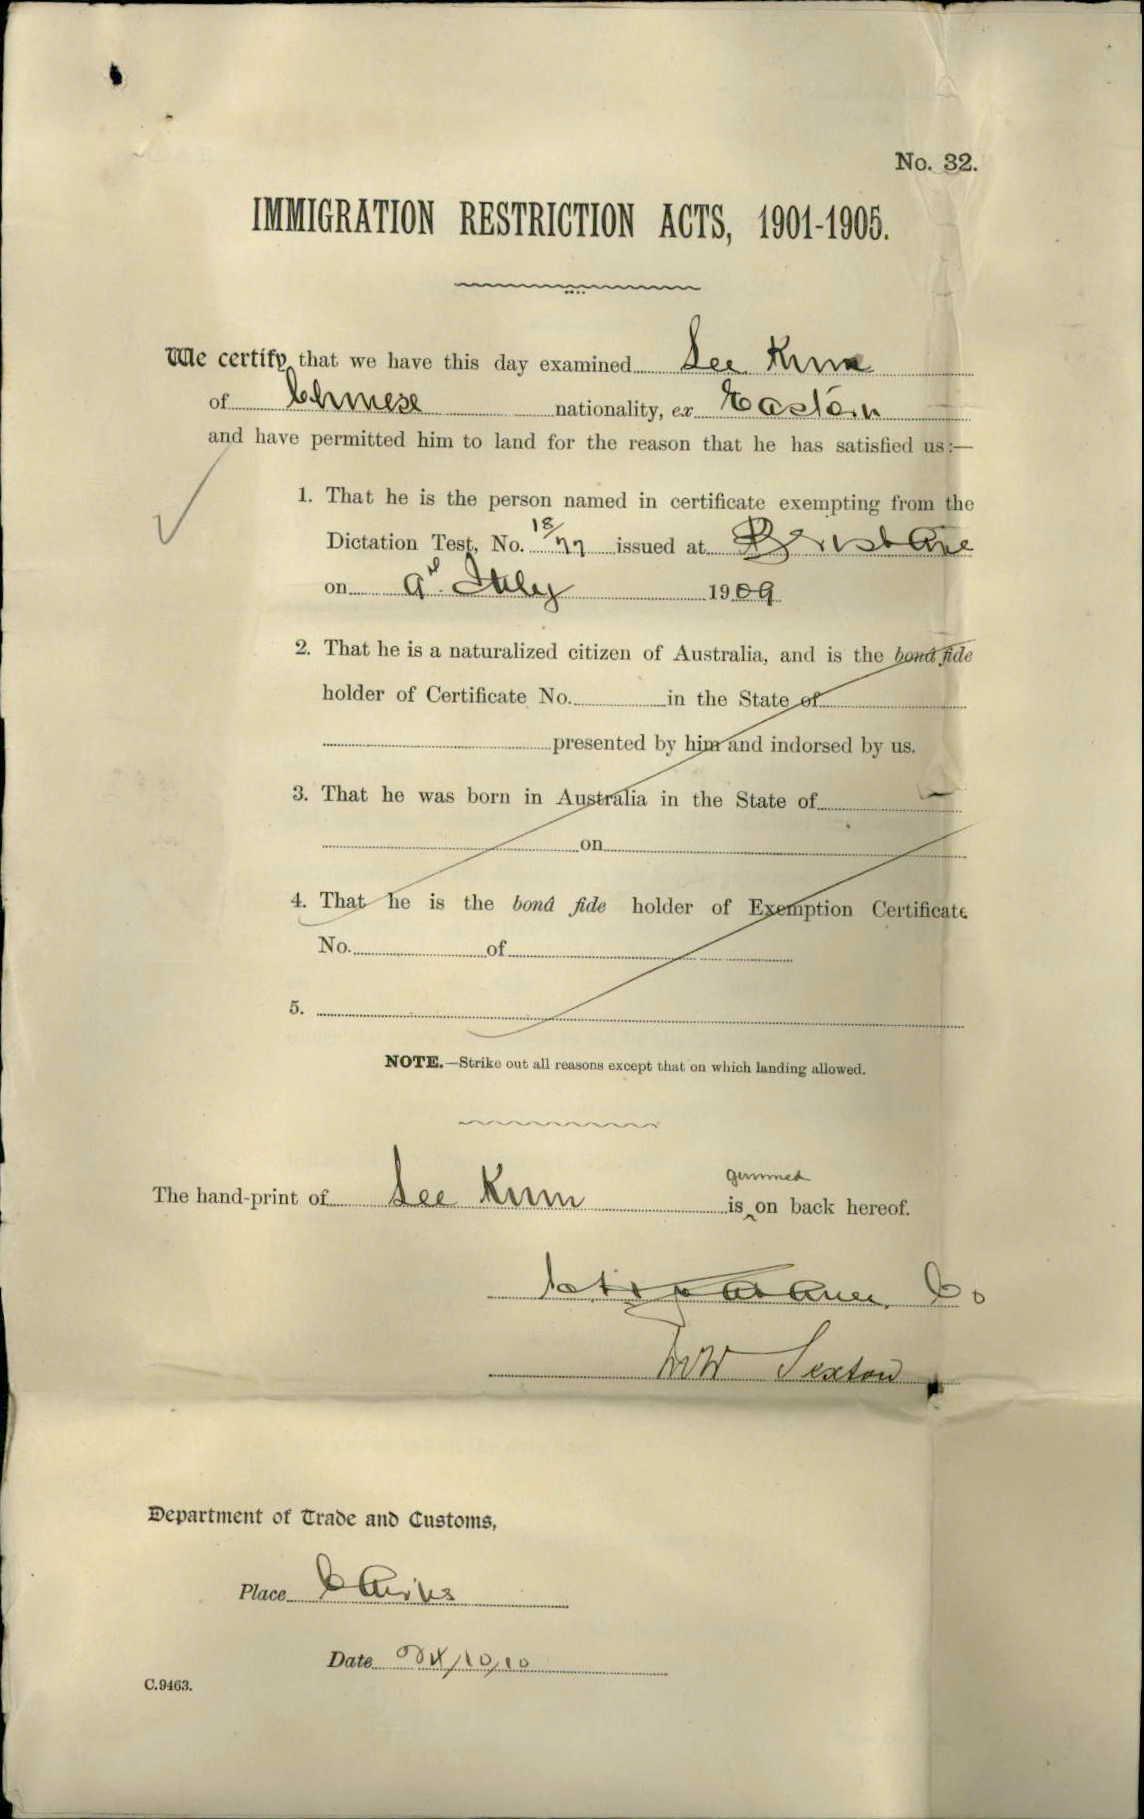 No. 32.
IMMIGRATION RESTRICTION ACTS, 1901-1905.
We certify that we have this day examined See Kum
of Chinese nationality, ex Eastern
and have permitted him to land for the reason that he has satisfied us:—
1. That he is the person named in certificate exempting from the
18/
Dictation Test, No. 77 issued at Brisbane
on 9th July 1909
2. That he is a naturalized citizen of Australia, and is the bonâ fide
holder of Certificate No. in the State of
presented by him and indorsed by us.
3. That he was born in Australia in the State of
on
4. That he is the bonâ fide holder of Exemption Certificate
No. of
5.
NOTE.—Strike out all reasons except that on which landing allowed.
gummed
The hand-print of See Kum is on back hereof.
Co
Sexton
Department of Trade and Customs,
Place Cairns
Date 24/10/10
C.9463.